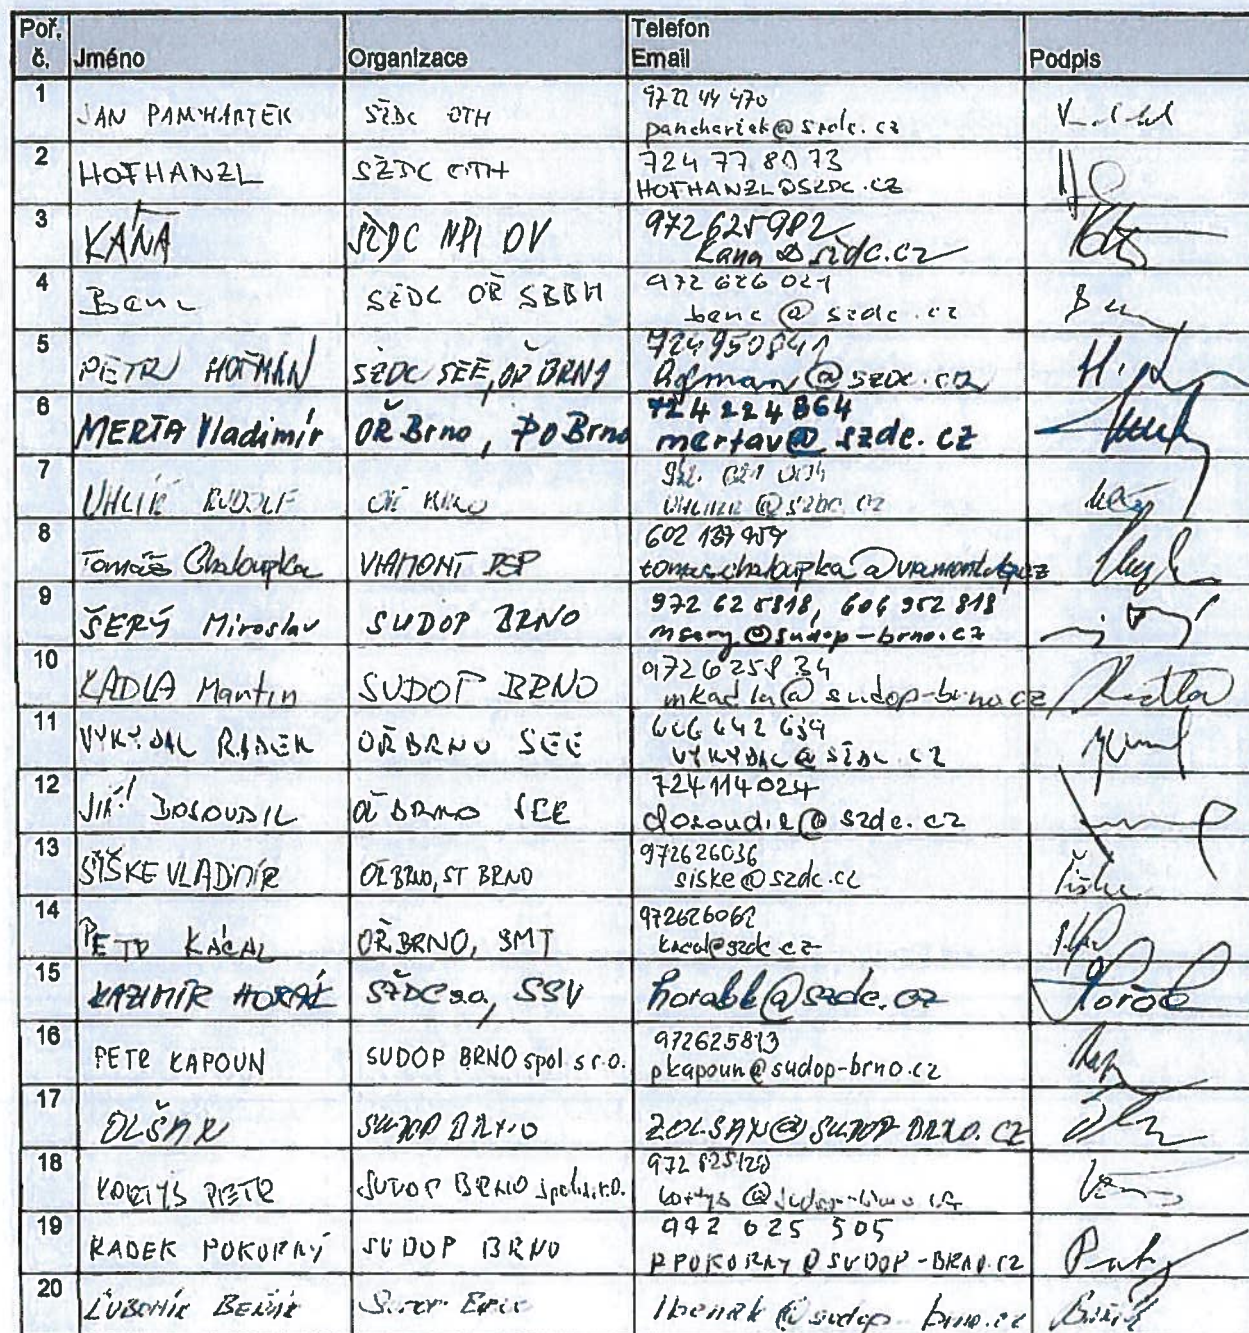 Poř. č. Jméno Organizace Telefon Email Podpis
1 JAN PANCHARTEK SŽDC OTH 9722 44 470
panchartek@szdc.cz
2 HOFHANZL SŽDC OTH 724 77 80 73
HOFHANZL@SZDC.CZ
3 KÁŇA SŽDC NPI OV 972625982
kana@szdc.cz
4 Benc SŽDC OŘ 972 626 021
benc@szdc.cz
5 PETR HOFMAN SŽDC SEE, OŘ BRNO 724950841
hofman@szdc.cz
6 MERTA Vladimír OŘ Brno, PO Brno 724 224 864
mertav@szdc.cz
7 UHLIŘ RUDOLF OŘ BRNO
8 Tomáš Chaloupka VIAMONT DSP 602
9 ŠERÝ Miroslav SUDOP BRNO 972 625818, 606 952 818
msery@sudop-brno.cz
10 KADLA Martin SUDOP BRNO 9726258 34
mkadla@sudop-brno.cz
11 VYKYDAL RADEK OŘ BRNO SEE 606 642 634
VYKYDAL@SŽDC.CZ
12 JIŘÍ DOSOUDIL OŘ BRNO SEE 724114024
dosoudil@szdc.cz
13 ŠIŠKE VLADIMÍR OŘ BRNO, ST BRNO 972626036 Šiške
siske@szdc.cz
14 PETR KACAL OŘ BRNO, SMT 972626062
kacal@szdc.cz
15 KAZIMÍR HORÁK SŽDC s.o., SSV horakk@szdc.cz Horák
16 PETR KAPOUN SUDOP BRNO spol. s r.o. 972625813
pkapoun@sudop-brno.cz
17 OLŠAN SUDOP BRNO ZOLSAN@SUDOP-BRNO.CZ
18 KORTYS PETR SUDOP BRNO spol. s r.o.
kortys@sudop-brno.cz
19 RADEK POKORNÝ SUDOP BRNO 972 625 505
RPOKORNY@SUDOP-BRNO.CZ
20 ĽUBOMÍR